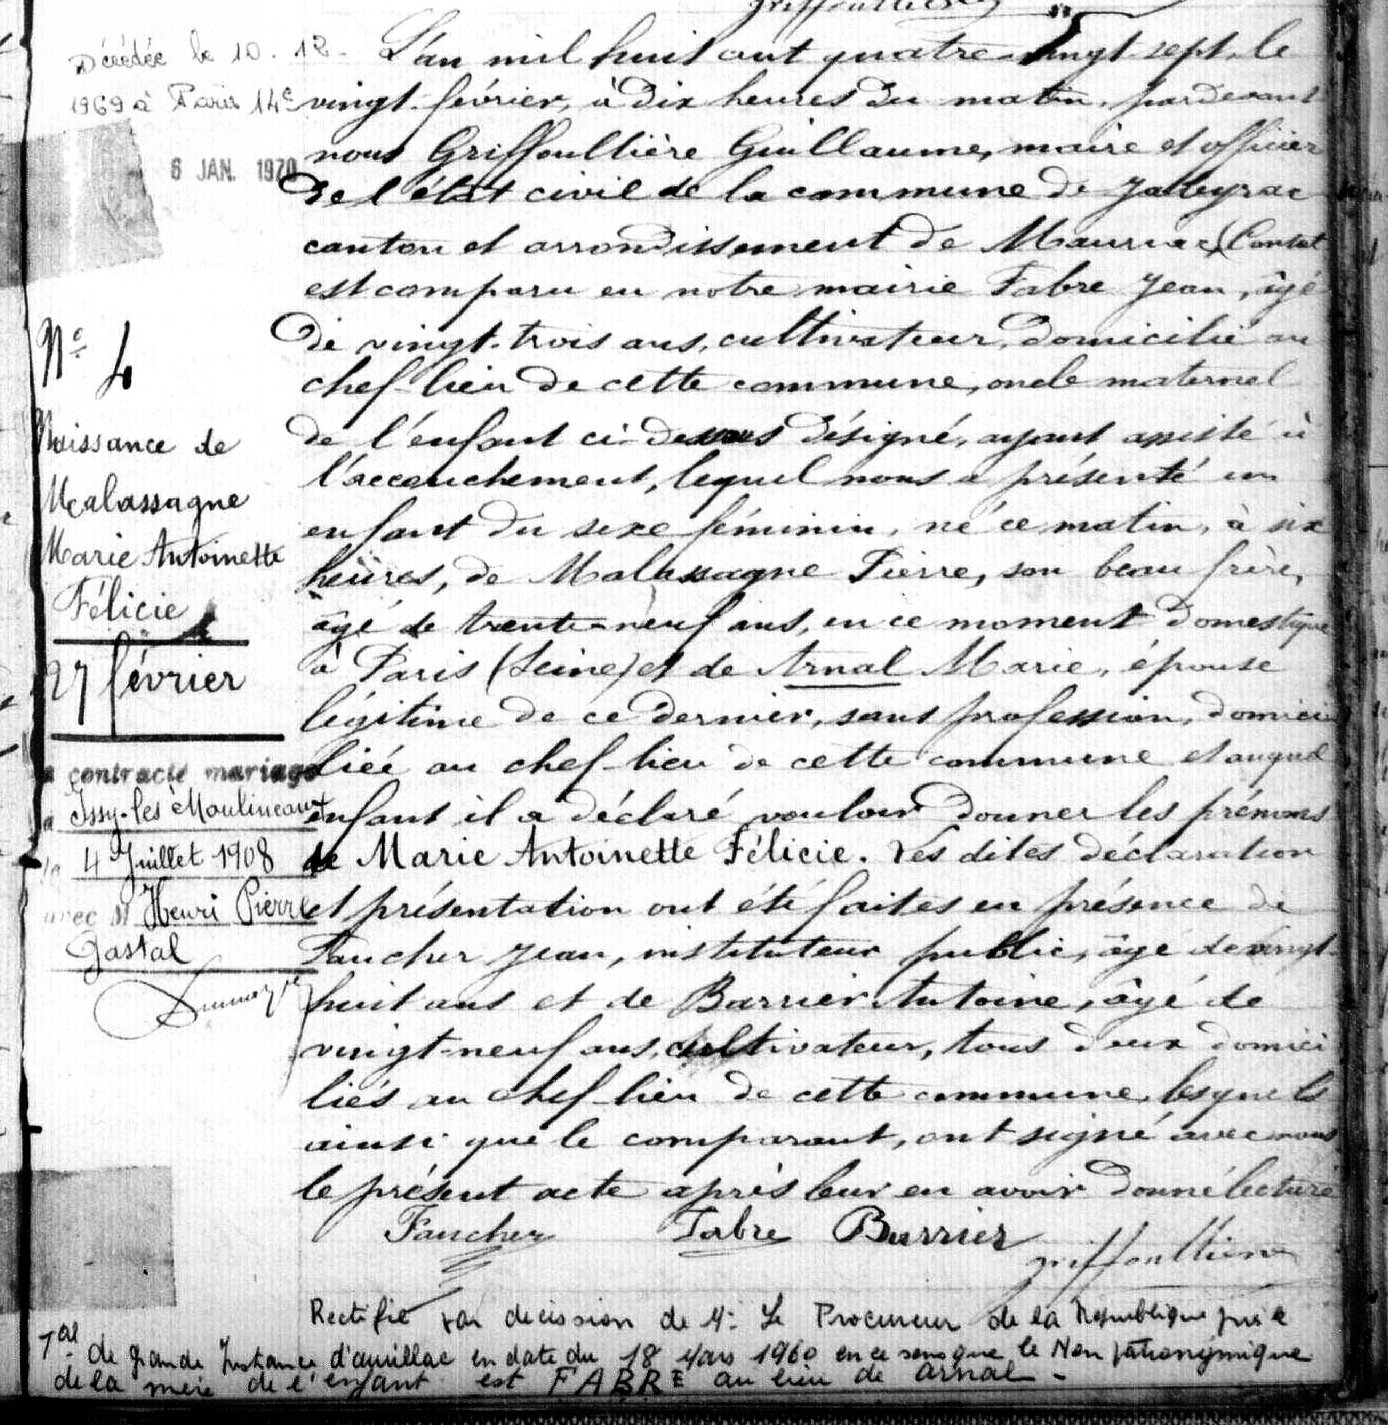 Décédée le 10. 12.
1969 à Paris 14e
6 JAN. 1970
No 4
Naissance de
Malassagne
Marie Antoinette
Félicie
27 février
a contracté mariage
à Issy-les Moulineaux
le 4 Juillet 1908
avec M Henri Pierre
L'an mil huit cent quatre-vingt-sept, le
vingt-février, à dix heures du matin, pardevant
nous Griffoullière Guillaume, maire et officier
de l'état civil de la commune de Jaleyrac
canton et arrondissement de Mauriac (Cantal
est comparu en notre mairie Fabre Jean, âgé
de vingt-trois ans, cultivateur, domicilié au
chef-lieu de cette commune, oncle maternel
de l'enfant ci-dessous désigné, ayant assisté à
l'accouchement, lequel nous a présenté un
enfant du sexe féminin, né ce matin, à six
heures, de Malassagne Pierre, son beau frère,
âgé de trente-neuf ans, en ce moment domestique
à Paris (Seine) et de Arnal Marie, épouse
légitime de ce dernier, sans profession, domici
liée au chef-lieu de cette commune et auquel
enfant il a déclaré vouloir donner les prénoms
de Marie Antoinette Félicie. Les dites déclaration
et présentation ont été faites en présence de
Faucher Jean, instituteur public, âgé de vingt-
huit ans et de Barrier Antoine, âgé de
vingt-neuf ans, cultivateur, tous deux domici
liés au chef-lieu de cette commune, lesquels
ainsi que le comparant, ont signé avec nous
le présent acte après leur en avoir donné lecture
Faucher Fabre Barrier Griffoullière
Rectifié par decission de Mr Le Procureur de la Republique près le
Tal de grande Instance d'aurillac en date du 18 Mars 1960 en ce sens que le Nom patronymique
de la mère de l'enfant est FABRE au lieu de arnal -